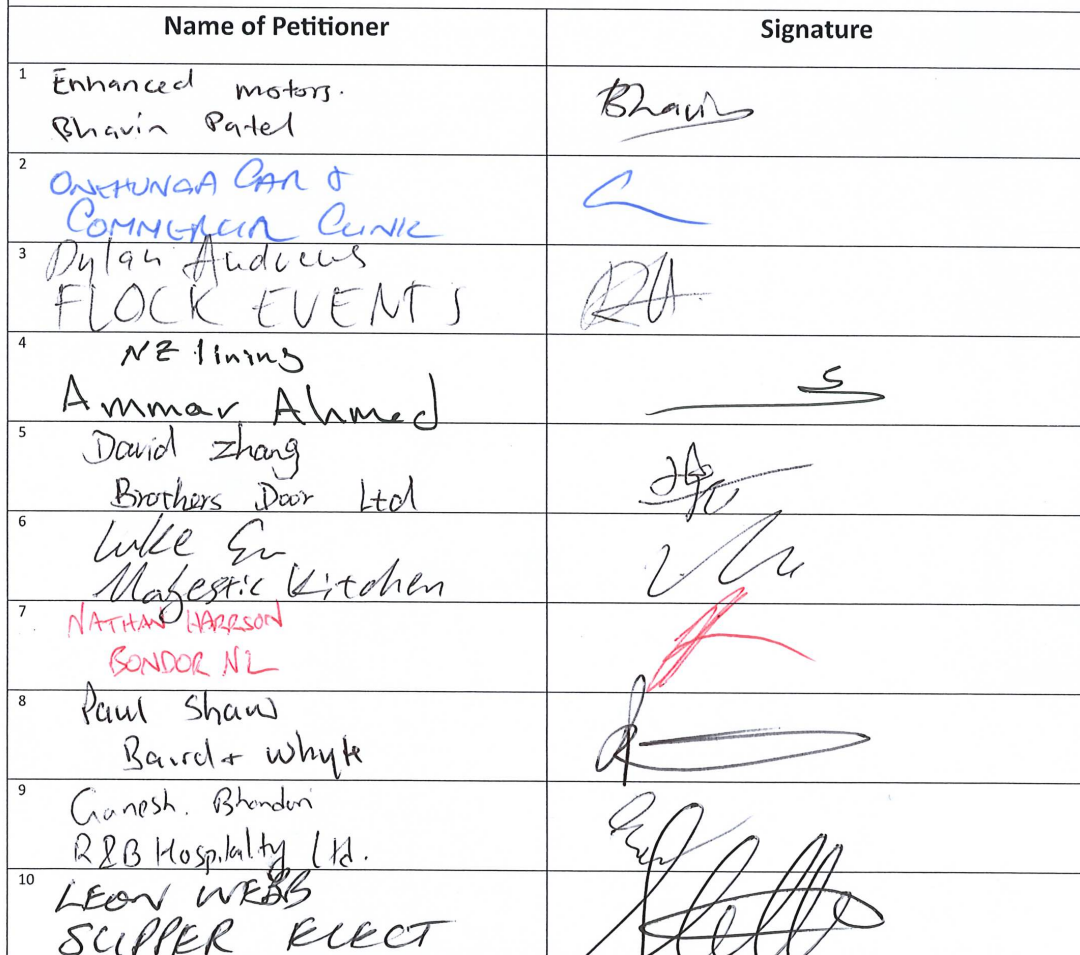 Name of Petitioner
Signature
1
Enhanced motors.
Bhavin Patel
Bhavin
2
ONEHUNGA CAR &
COMMERCIAL CLINIC
3
Dylan Andrews
FLOCK EVENTS
4
NZ lining
Ammar Ahmed
5
David Zhang
Brothers Door Ltd
6
Luke
Majestic Kitchen
7
NATHAN HARRSON
BONDOR NZ
8
Paul Shaw
Baird + Whyte
9
Ganesh. Bhandari
R&B Hospitality Ltd.
10
LEON WEBB
SLIPPER ELECT